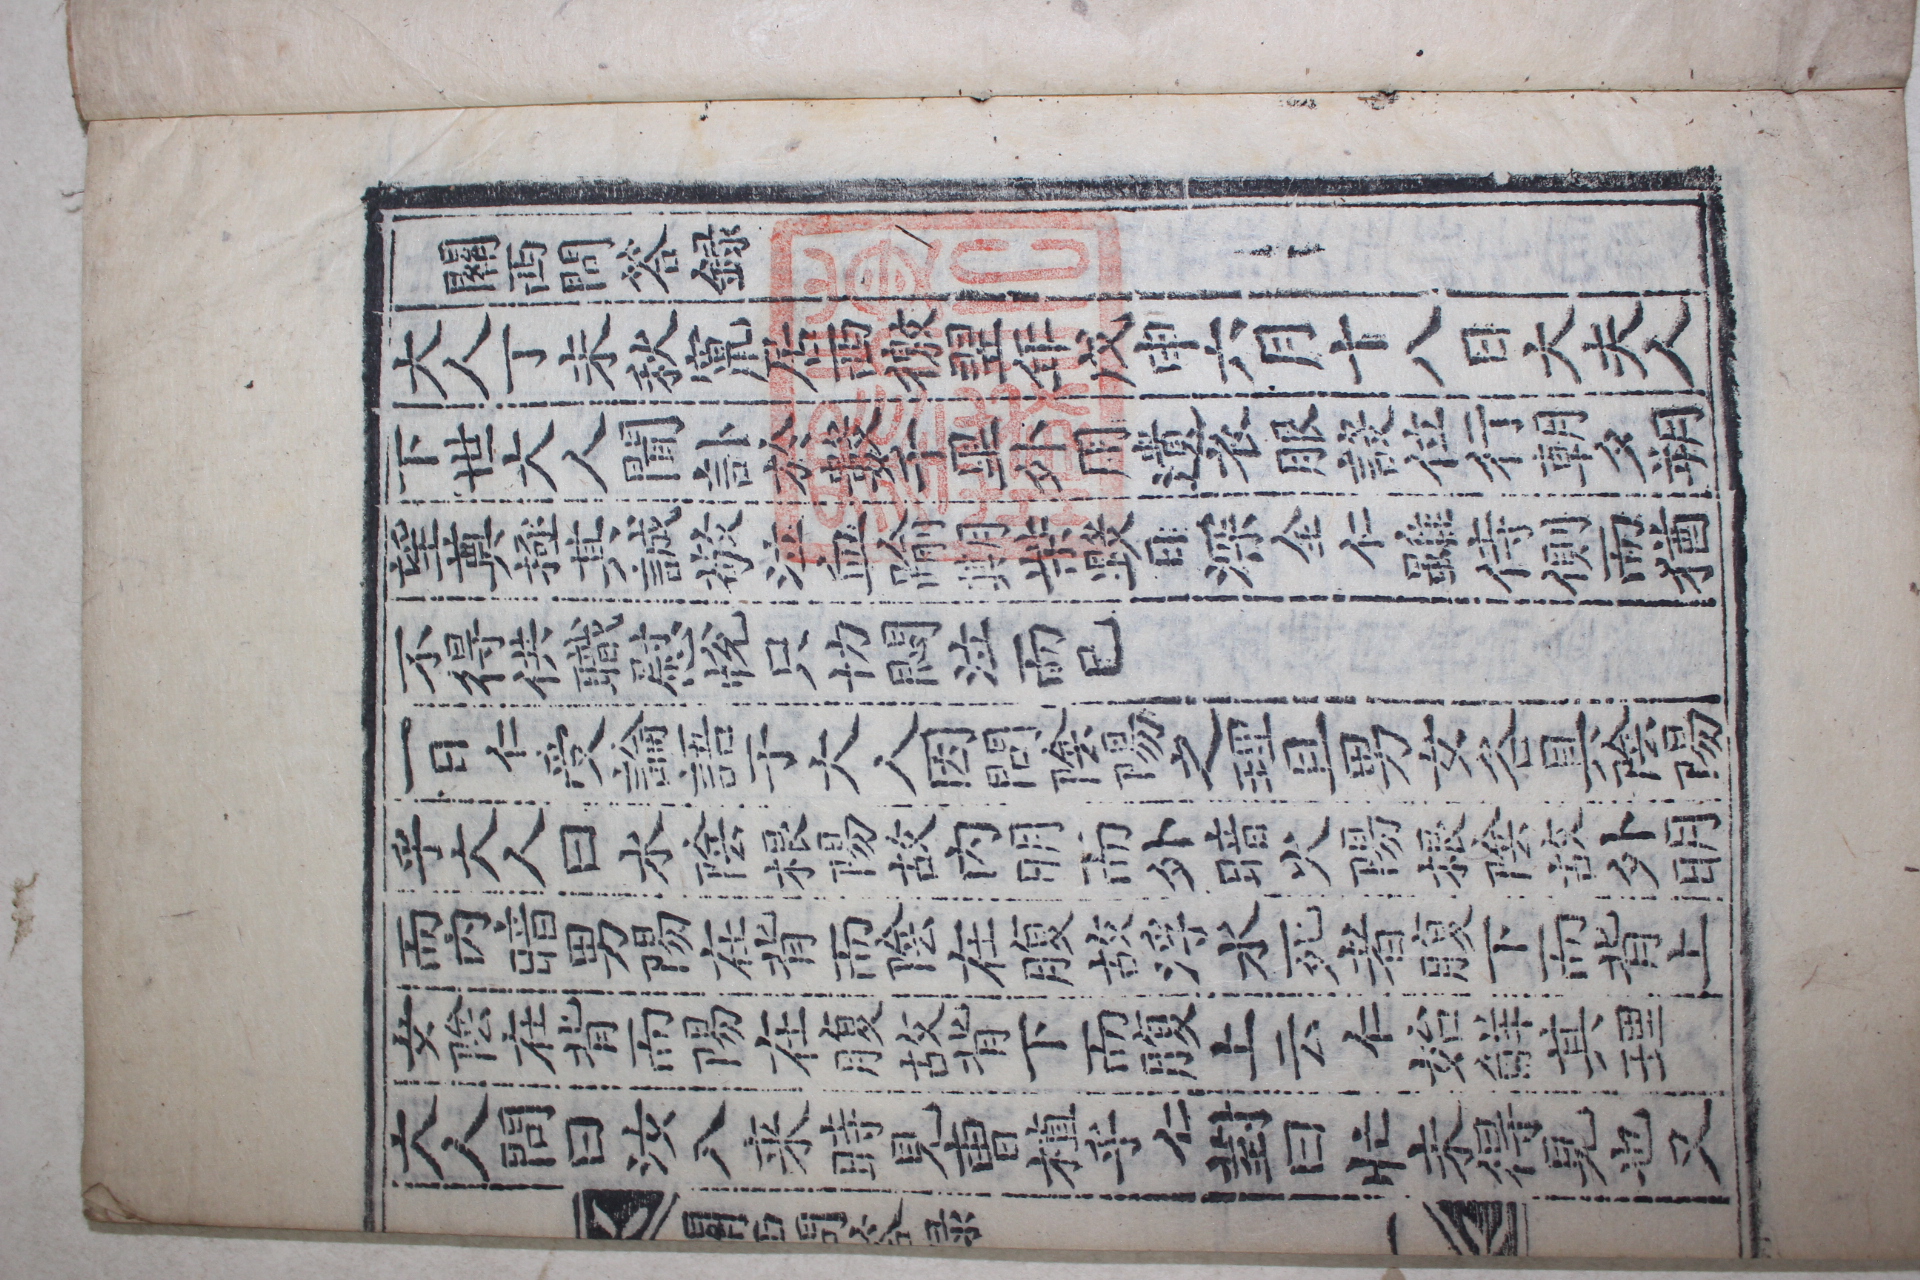 關西問答録
大人丁未秋竄居西徼翌年戊申六月十八日大夫人
下世大人聞訃於數千里外用遺衣服設位行朝夕朔
望奠極其誠敬泣血踰期柴毀日深全仁雖侍側而猶
不得供職慰悅只切悶泣而已
一日仁受論語于大人因問陰陽之理且男女各具陰陽
乎大人曰水陰根陽故内明而外暗火陽根陰故外明
而内暗男陽在背而陰在腹故浮水死者腹下而背上
女陰在背而陽在腹故背下而腹上云仁始觧其理
大人問曰汝入来時見曺植乎仁對曰忙未得見也又
關西問答录
一